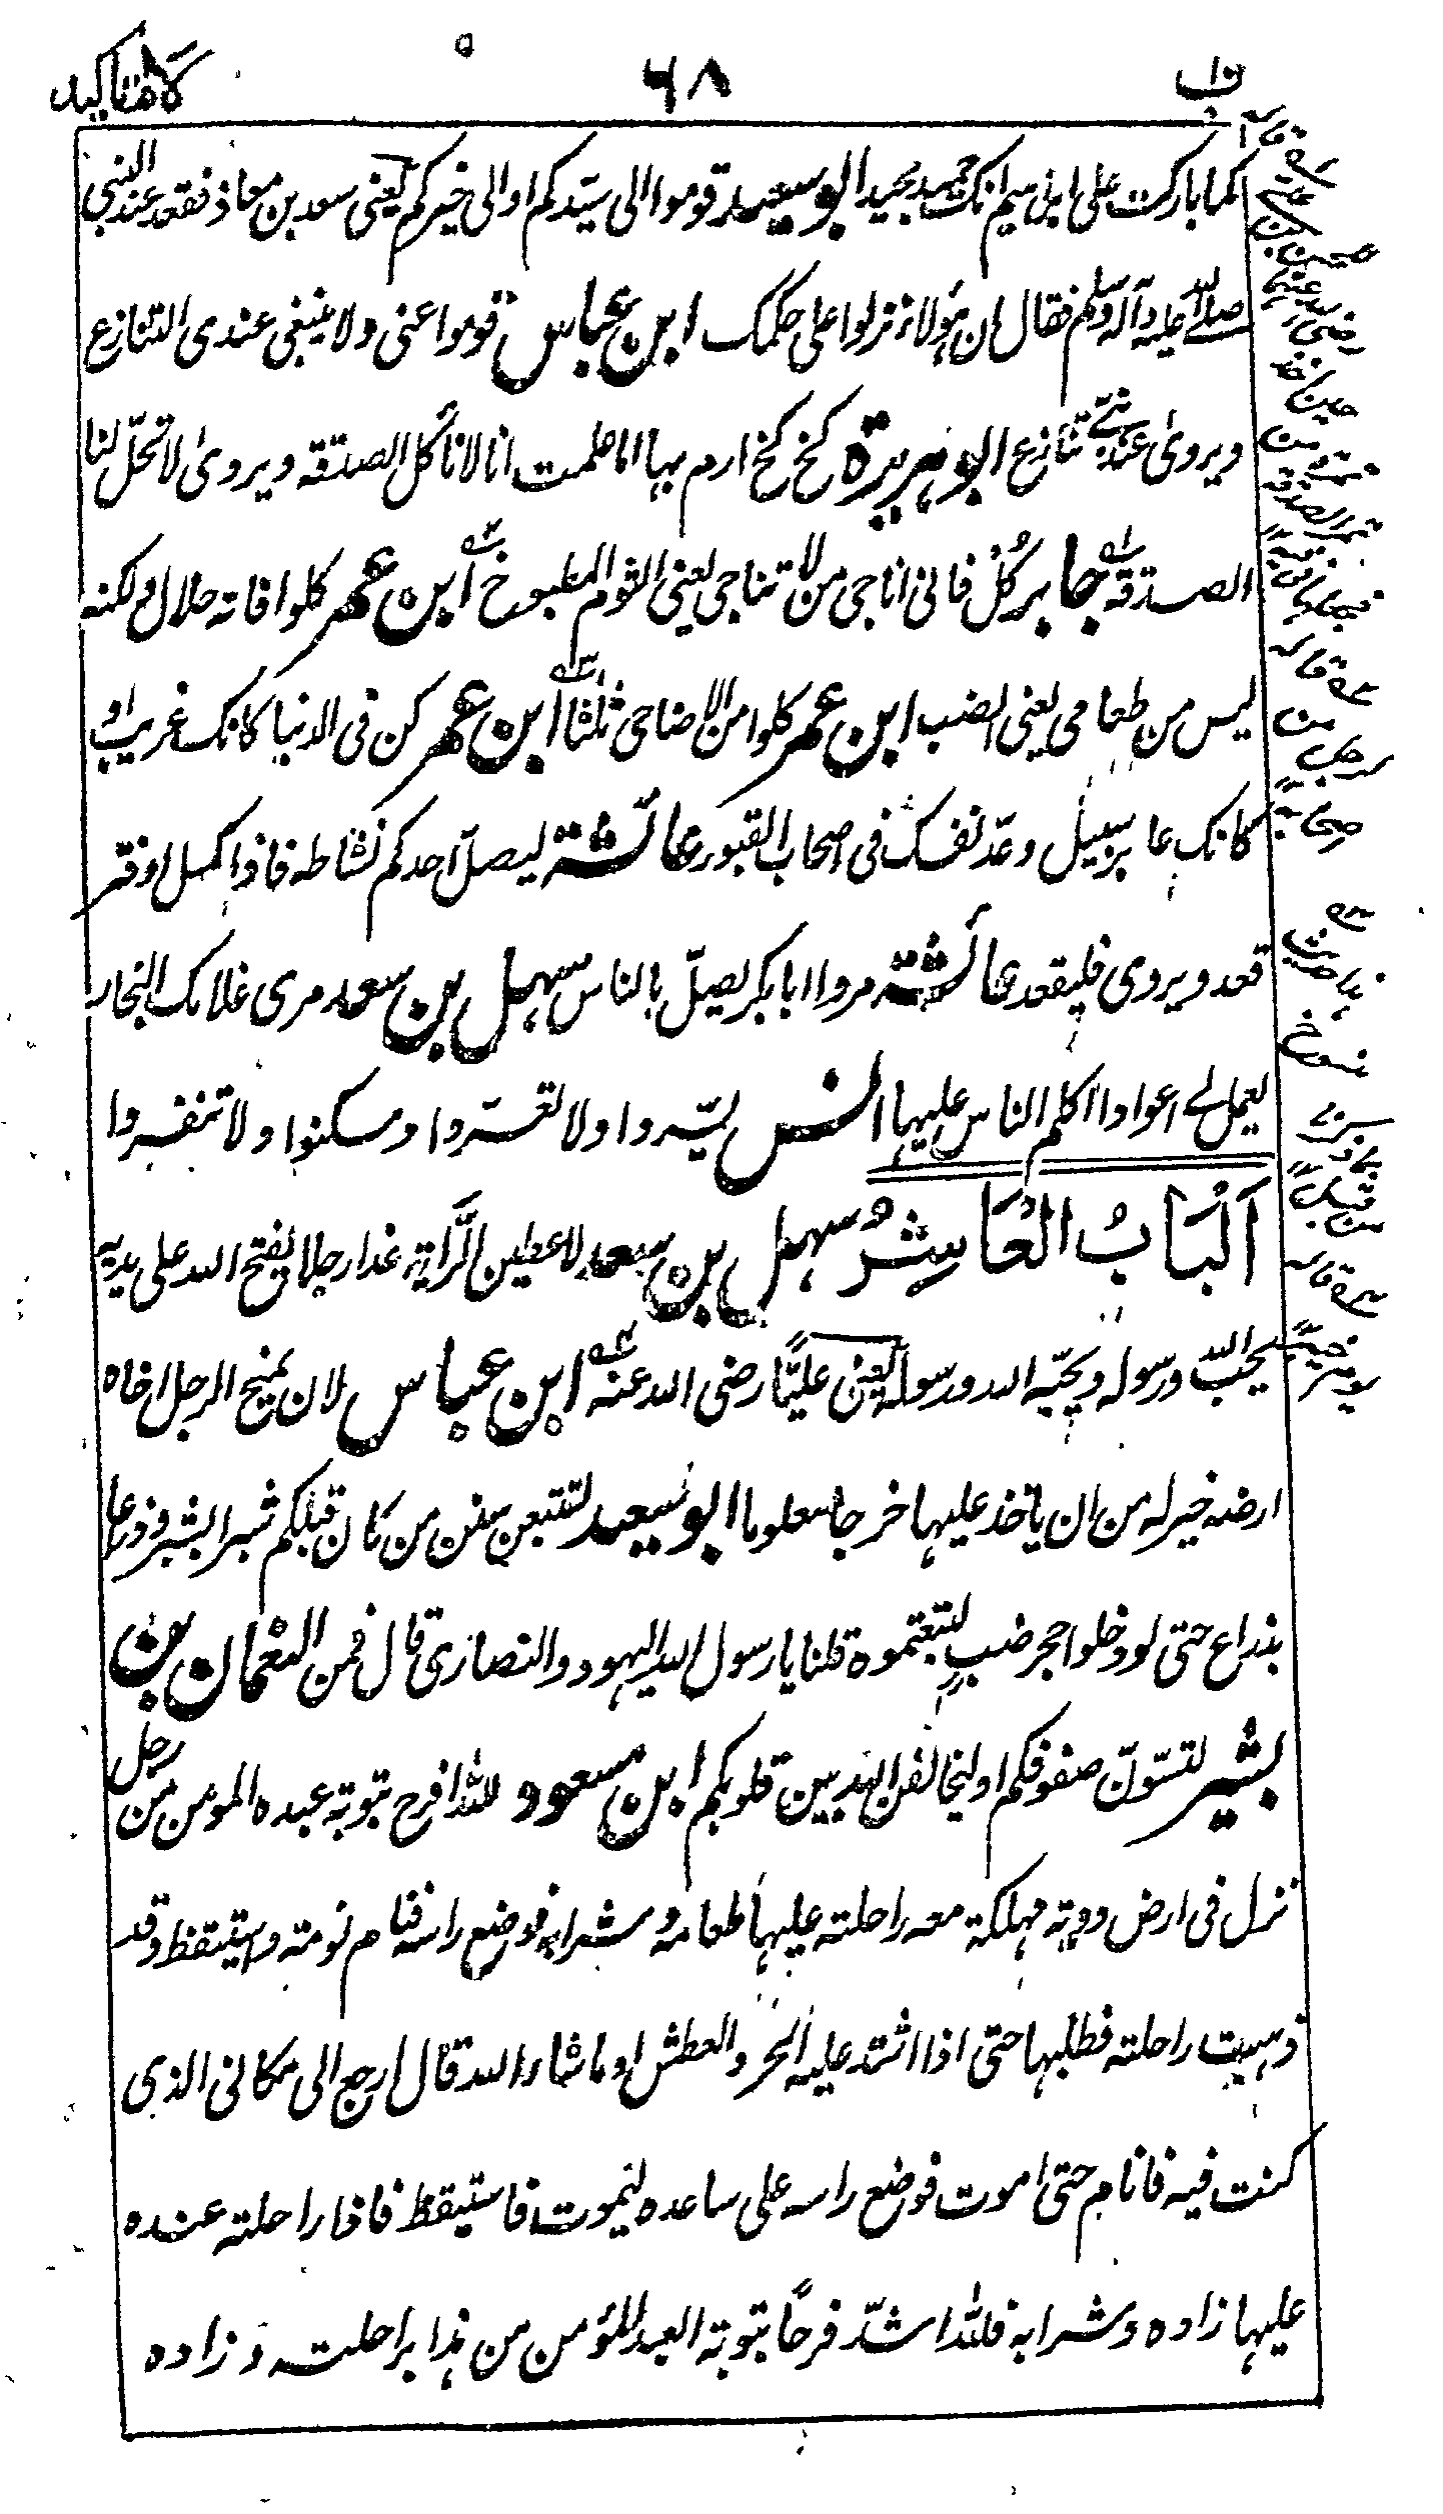 ب ۱۰
۶۸
لام تاكيد
كما باركت على ابراهيم انك حميد مجيد ابو سعيد قوموا الى سيّدكم او الى خيركم يعنى سعد بن معاذ فقعد عند النبي
صلى الله عليه وآله وسلم فقال ان هؤلاء نزلوا على حكمك ابن عباس قوموا عنى ولا ينبغى عندى التنازع
ويروى عند نبي تنازع ابو هريرة كخ كخ ارم بها اما علمت انا لا نأكل الصدقة ويروى لا تحلّ لنا
الصدقة جابر كُلْ فانى اناجى من لا تناجى يعنى الثوم المطبوخ ابن عمر كلوا فانه حلال ولكنه
ليس من طعامى يعنى الضب ابن عمر كلوا من الاضاحى ثلثا ابن عمر كن فى الدنيا كانك غريب او
كانك عابر سبيل وعدّ نفسك فى اصحاب القبور عائشة ليصلّ احدكم نشاطه فاذا كسل او فتر
قعد ويروى فليقعد عائشة مروا ابا بكر يصلّ بالناس سهل بن سعد مرى غلامك النجار
يعمل لي اعوادا اكلم الناس عليها انس يسّروا ولا تعسّروا وسكنوا ولا تنفروا
اَلْبَابُ الْعَاشِرُ سهل بن سعد لاعطين الرَّاية غدا رجلا يفتح الله على يديه
يحبّ الله ورسوله ويحبّه الله ورسوله يعنى عليًّا رضى الله عنه ابن عباس لان يمنح الرجل اخاه
ارضه خير له من ان ياخذ عليها خرجا معلوما ابو سعيد لتتبعن سنن من كان قبلكم شبرا بشبر وذراعا
بذراع حتى لو دخلوا جحر ضبٍ لتبعتموه قلنا يا رسول الله اليهود والنصارى قال فمن النعمان بن
بشير لتسوّن صفوفكم او ليخالفن الله بين قلوبكم ابن مسعود لله افرح بتوبة عبده المومن من رجل
نزل فى ارض دوية مهلكة معه راحلته عليها طعامه وشرابه فوضع راسه فنام نومة واستيقظ وقد
ذهبت راحلته فطلبها حتى اذا اشتد عليه الحر والعطش او ما شاء الله قال ارجع الى مكانى الذى
كنت فيه فانام حتى اموت فوضع راسه على ساعده ليموت فاستيقظ فاذا راحلته عنده
عليها زاده وشرابه فلله اشدّ فرحًا بتوبة العبد المؤمن من هذا براحلته وزاده